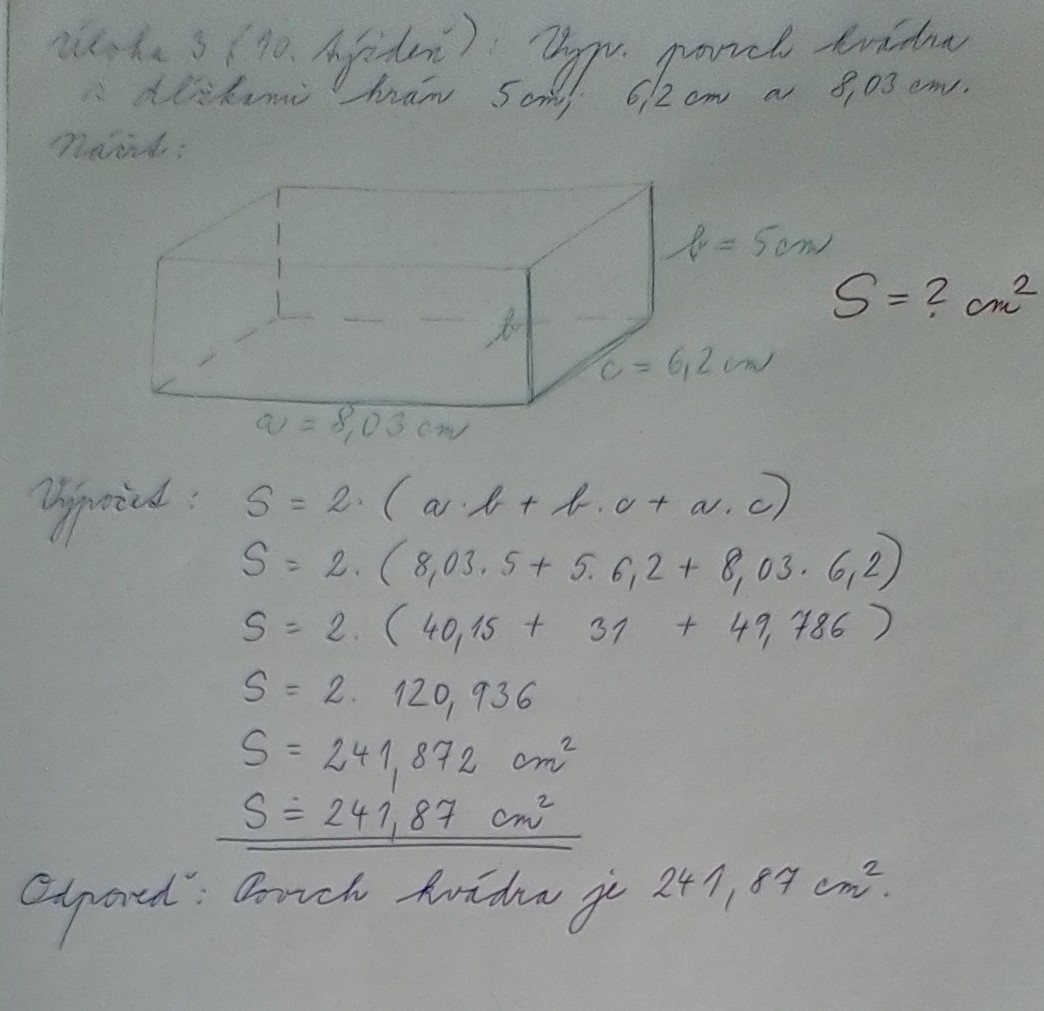 Úloha 3 (10. týždeň): Vyp. povrch kvádra
s dĺžkami hrán 5 cm, 6,2 cm a 8,03 cm.
Náčrt:
b = 5 cm
S = ? cm²
b
c = 6,2 cm
a = 8,03 cm
Výpočet: S = 2. (a.b + b.c + a.c)
S = 2. (8,03.5 + 5.6,2 + 8,03.6,2)
S = 2. (40,15 + 31 + 49,786)
S = 2. 120,936
S = 241,872 cm²
S ≐ 241,87 cm²
Odpoveď: Povrch kvádra je 241,87 cm².